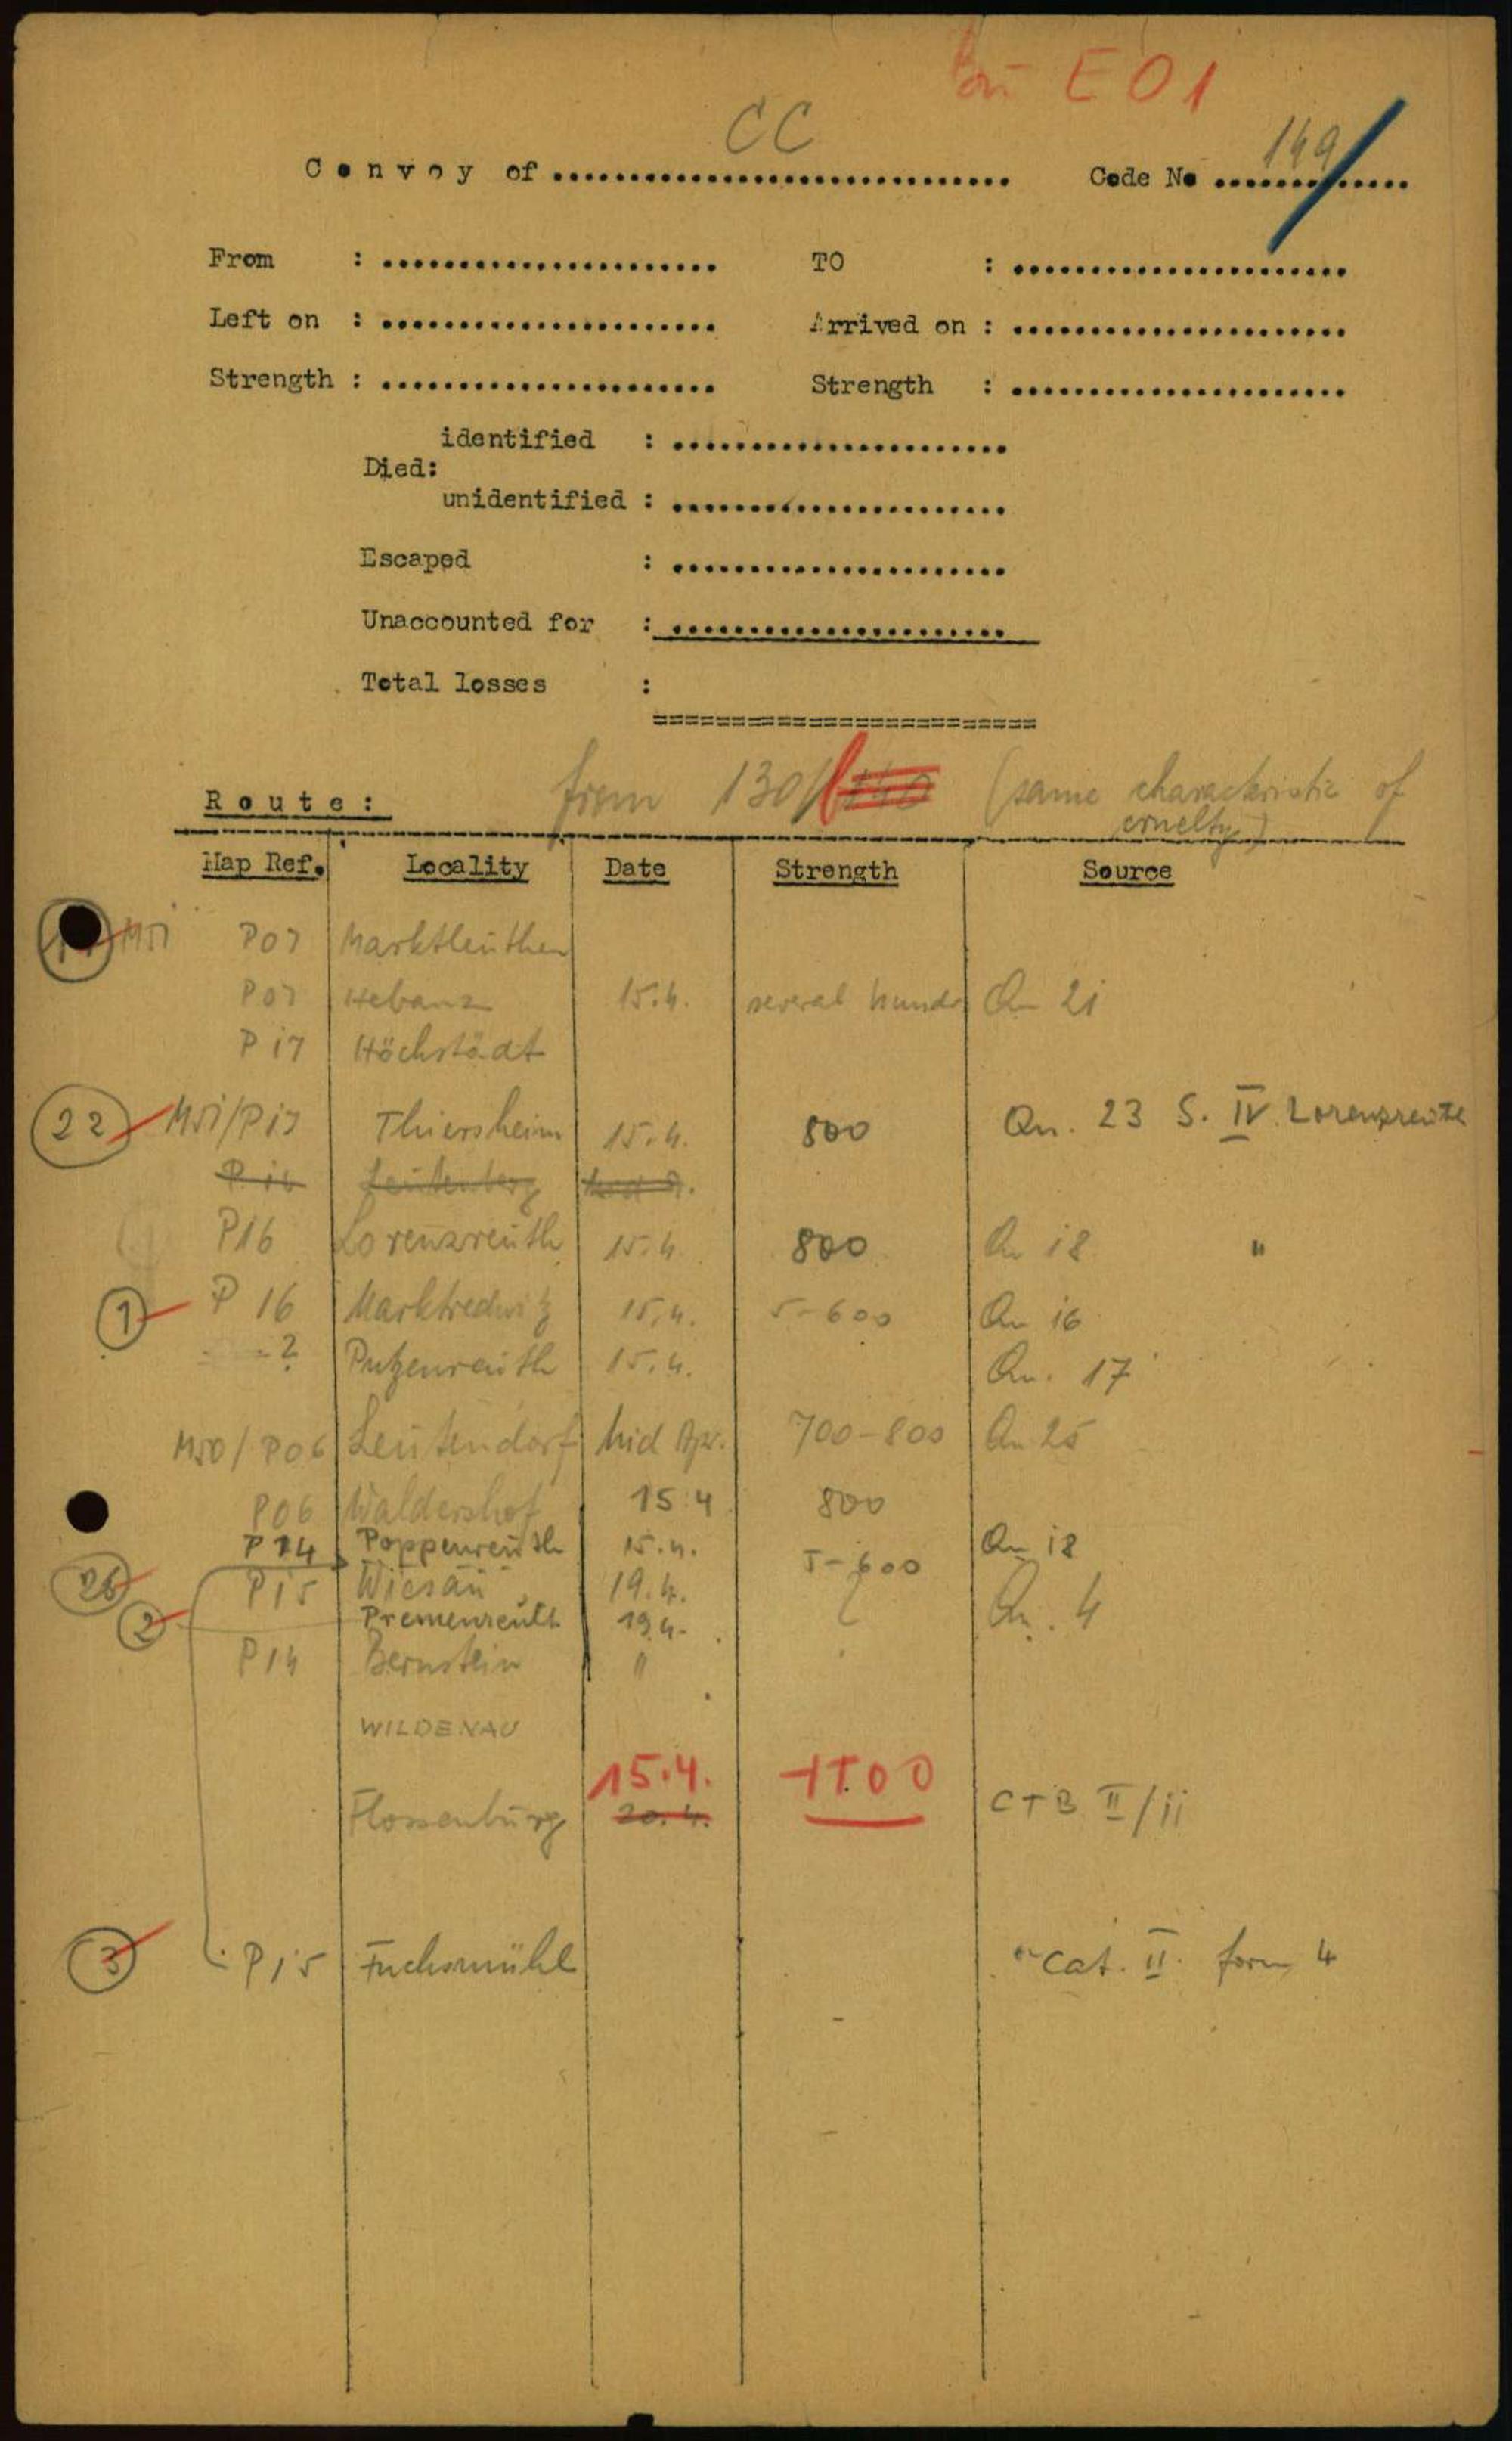 E01
CC
149
Convoy of .............................. Code No .............
From : ...................... TO : ......................
Left on : ...................... Arrived on : ......................
Strength : ...................... Strength : ......................
identified : ......................
Died:
unidentified : ......................
Escaped : ......................
Unaccounted for : ......................
Total losses :
========================
from 130/ (same characteristic of
cruelty)
Route:
Map Ref. Locality Date Strength Source
M51 P07 Marktleuthen
P07 Hebanz 15.4. several hundr Qn 21
P17 Höchstädt
22 M51/P17 Thiersheim 15.4. 800 Qn. 23 S. IV. Lorenzreuth
Leutenberg
P16 Lorenzreuth 15.4 800 Qn 18 "
1 P 16 Marktredwitz 15.4. 5-600 Qn 16
-? Putzenreuth 15.4. Qn. 17
M50/P06 Leutendorf Mid Apr. 700-800 Qn 25
P06 Waldershof 15.4 800
P14 Poppenreuth 15.4. 5-600 Qn 18
26 P15 Wiesau 19.4. Qn. 4
2 Premenreuth 19.4.
P14 Bernstein "
WILDENAU
15.4. 1500
Flossenbürg 20.4. CTB II/11
3 P15 Fuchsmühl Cat. II. form 4